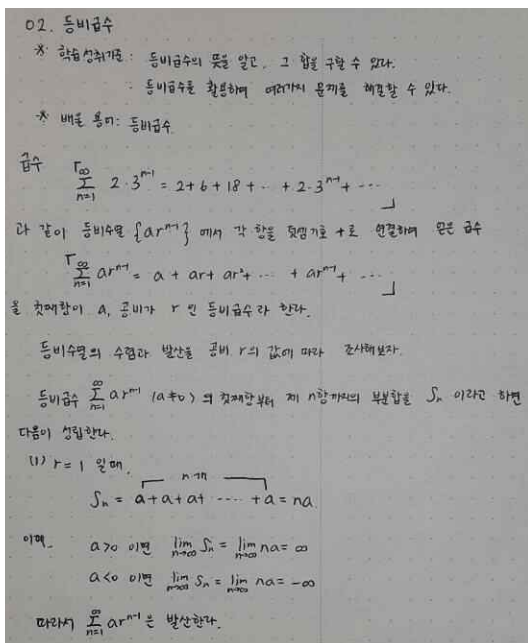 02. 등비급수
* 학습성취기준: 등비급수의 뜻을 알고, 그 합을 구할 수 있다.
등비급수를 활용하여 여러가지 문제를 해결할 수 있다.
* 배울 용어: 등비급수
급수
∑_{n=1}^{∞} 2·3^{n-1} = 2+6+18+ ··· + 2·3^{n-1} + ···
과 같이 등비수열 {ar^{n-1}} 에서 각 항을 덧셈기호 +로 연결하여 얻은 급수
∑_{n=1}^{∞} ar^{n-1} = a + ar + ar² + ··· + ar^{n-1} + ···
을 첫째항이 a, 공비가 r 인 등비급수라 한다.
등비수열의 수렴과 발산을 공비 r의 값에 따라 조사해보자.
등비급수 ∑_{n=1}^{∞} ar^{n-1} (a≠0) 의 첫째항부터 제 n항까지의 부분합을 Sₙ 이라고 하면
다음이 성립한다.
(1) r=1 일때,
n개
Sₙ = a+a+a+ ····· +a = na.
이때, a>0 이면 lim_{n→∞} Sₙ = lim_{n→∞} na = ∞
a<0 이면 lim_{n→∞} Sₙ = lim_{n→∞} na = -∞
따라서 ∑_{n=1}^{∞} ar^{n-1} 은 발산한다.